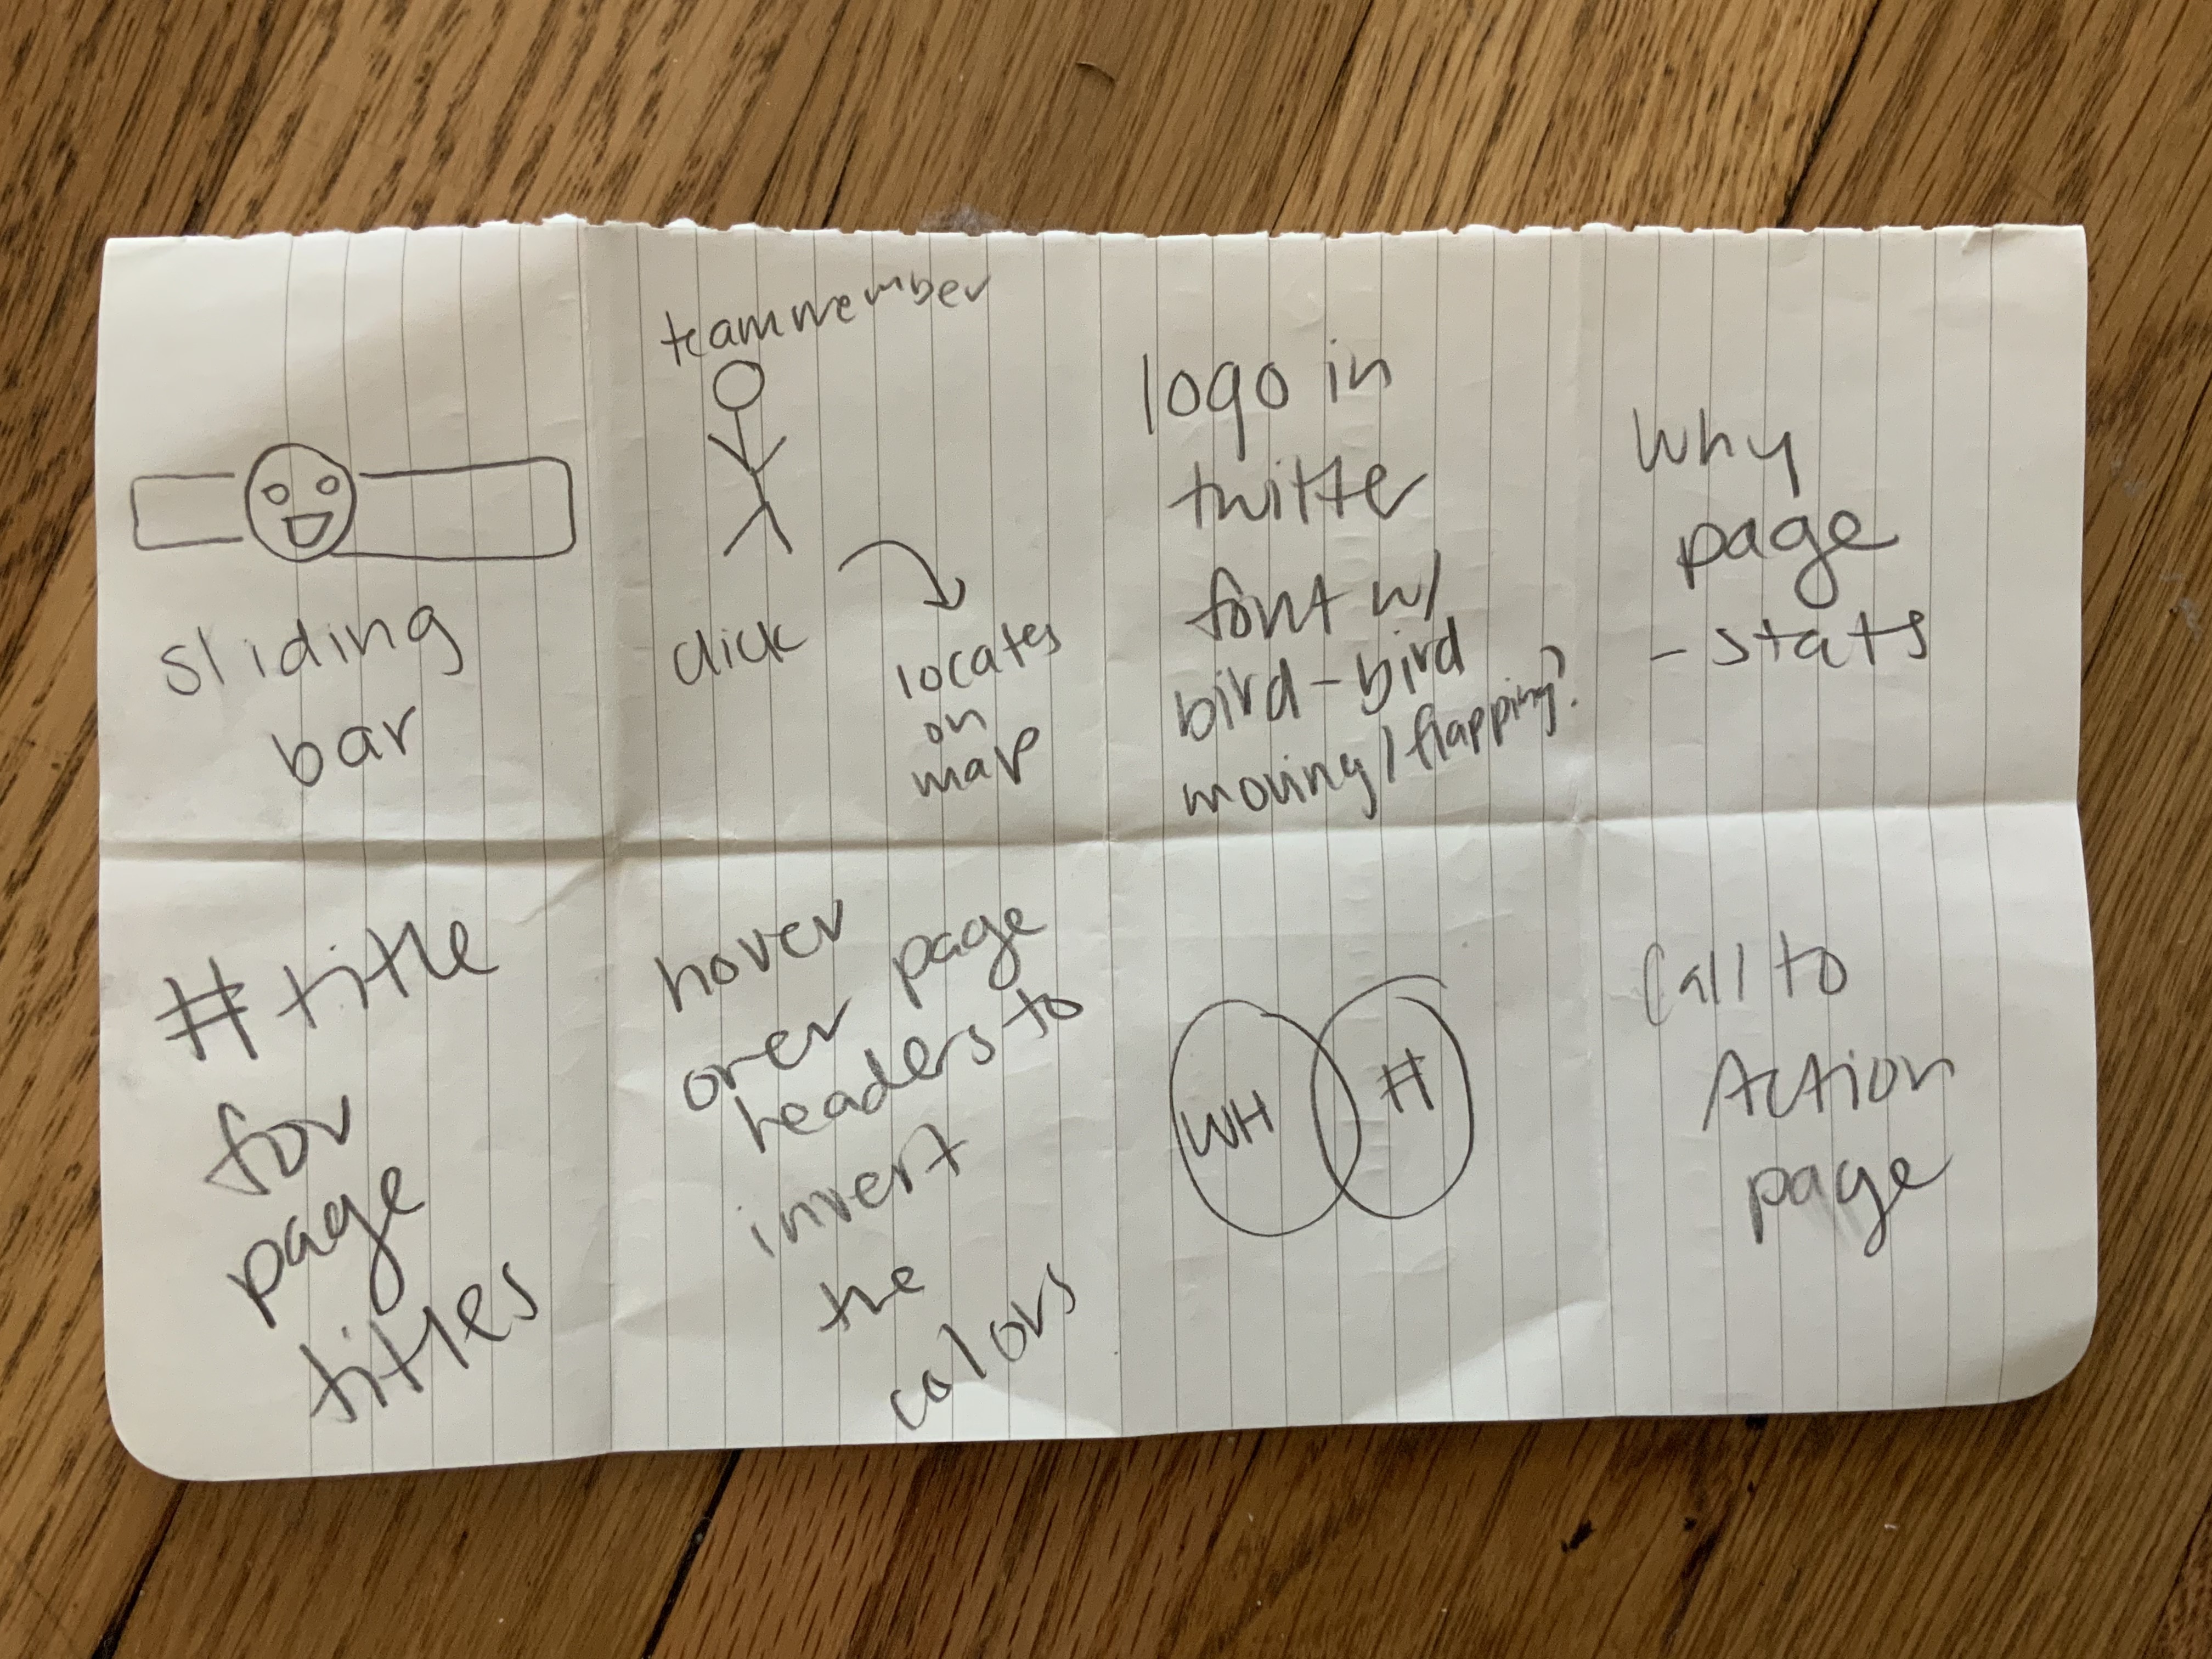 sliding
bar
teammember
click
locates
on
map
logo in
twitter
font w/
bird - bird
moving / flapping?
why
page
- stats
# title
for
page
titles
hover
over page
headers to
invert
the
colors
WH
#
Call to
Action
page